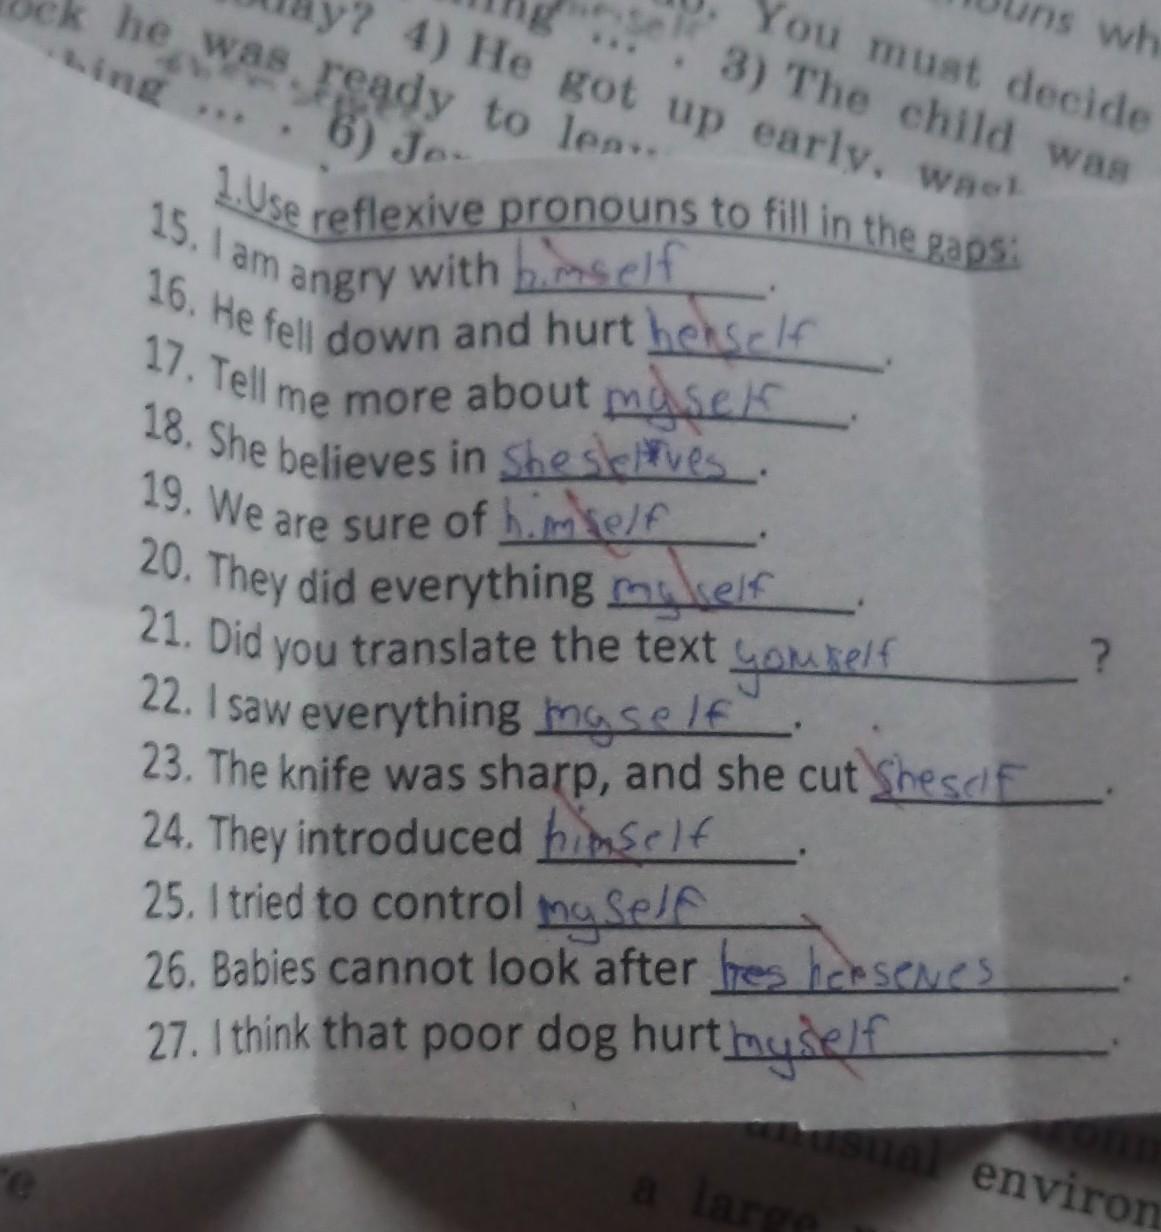 ouns wh
You must decide
ay? 4) He got up early, 3) The child was
ock he was ready to
hing ... . 6)
1.Use reflexive pronouns to fill in the gaps:
15. I am angry with himself.
16. He fell down and hurt herself.
17. Tell me more about myself.
18. She believes in .
19. We are sure of himself.
20. They did everything myself.
21. Did you translate the text yourself?
22. I saw everything myself.
23. The knife was sharp, and she cut sheself.
24. They introduced himself.
25. I tried to control myself
26. Babies cannot look after .
27. I think that poor dog hurt myself.
unusual environ
a large